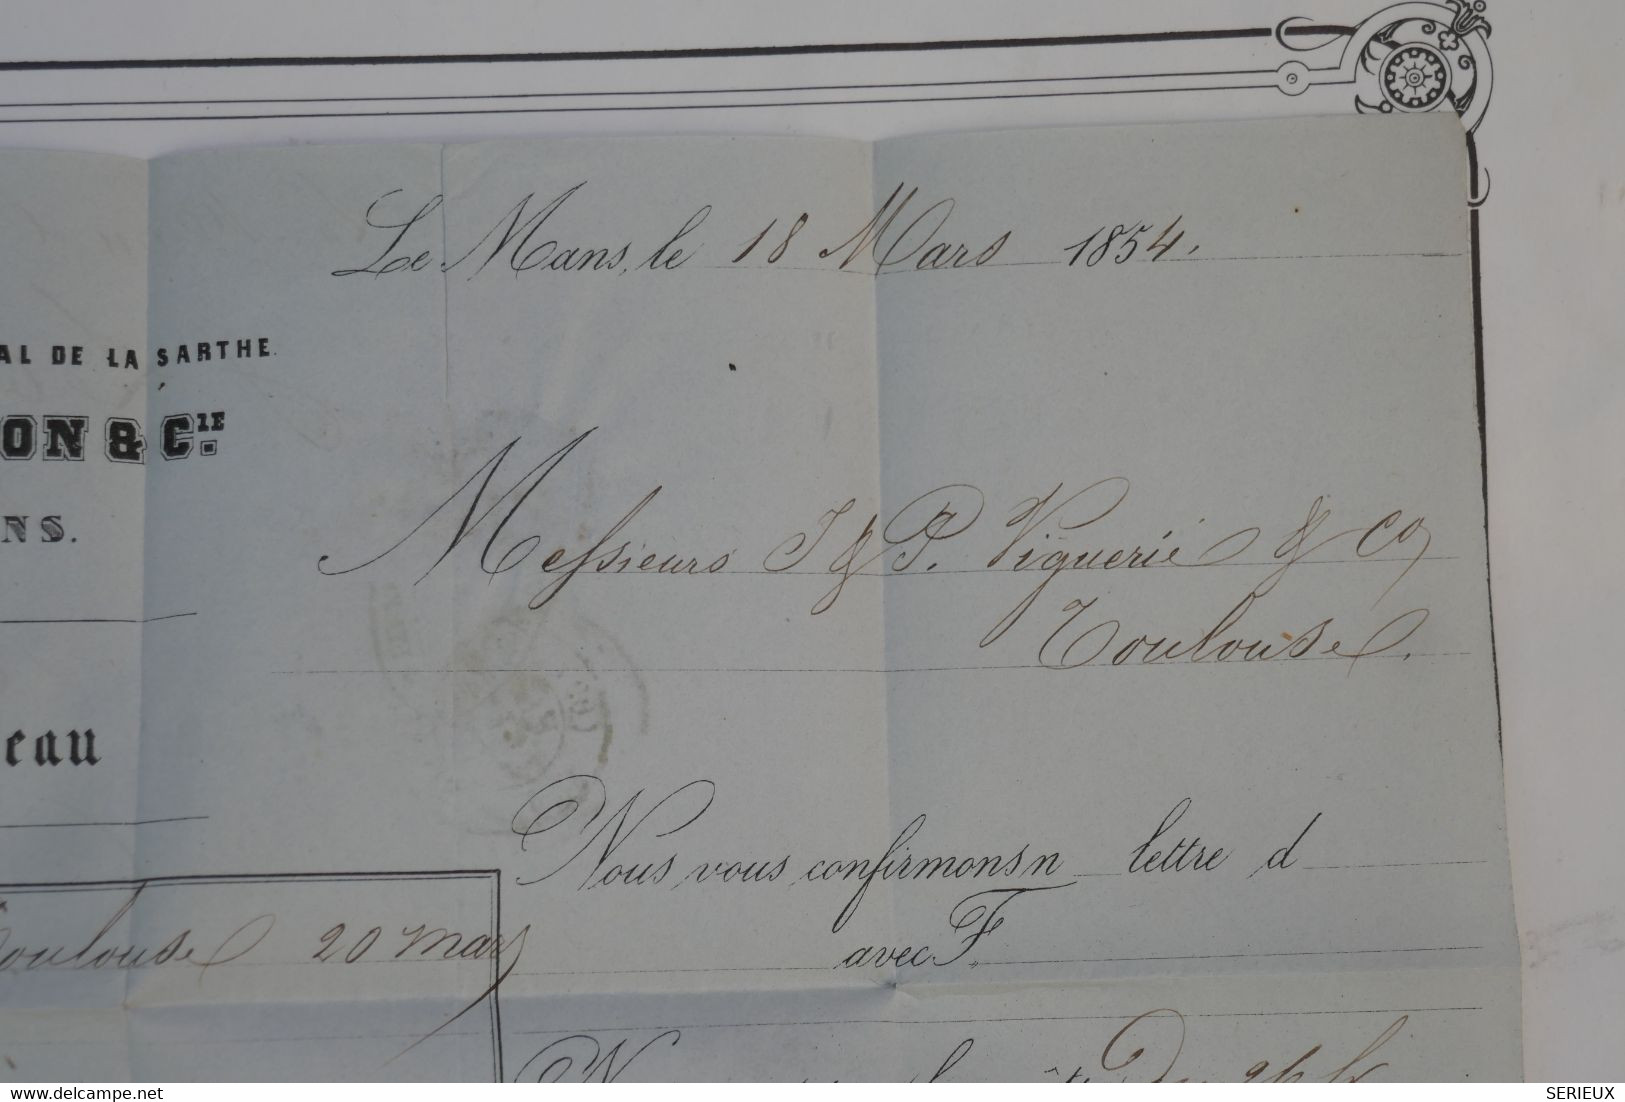 Le Mans, le 18 Mars 1854.
AL DE LA SARTHE.
ON & CIE.
NS.
Messieurs J & P. Viguerie & Co
Toulouse.
eau
Nous vous confirmons n lettre d
avec F.
Toulouse 20 mars
SERIEUX